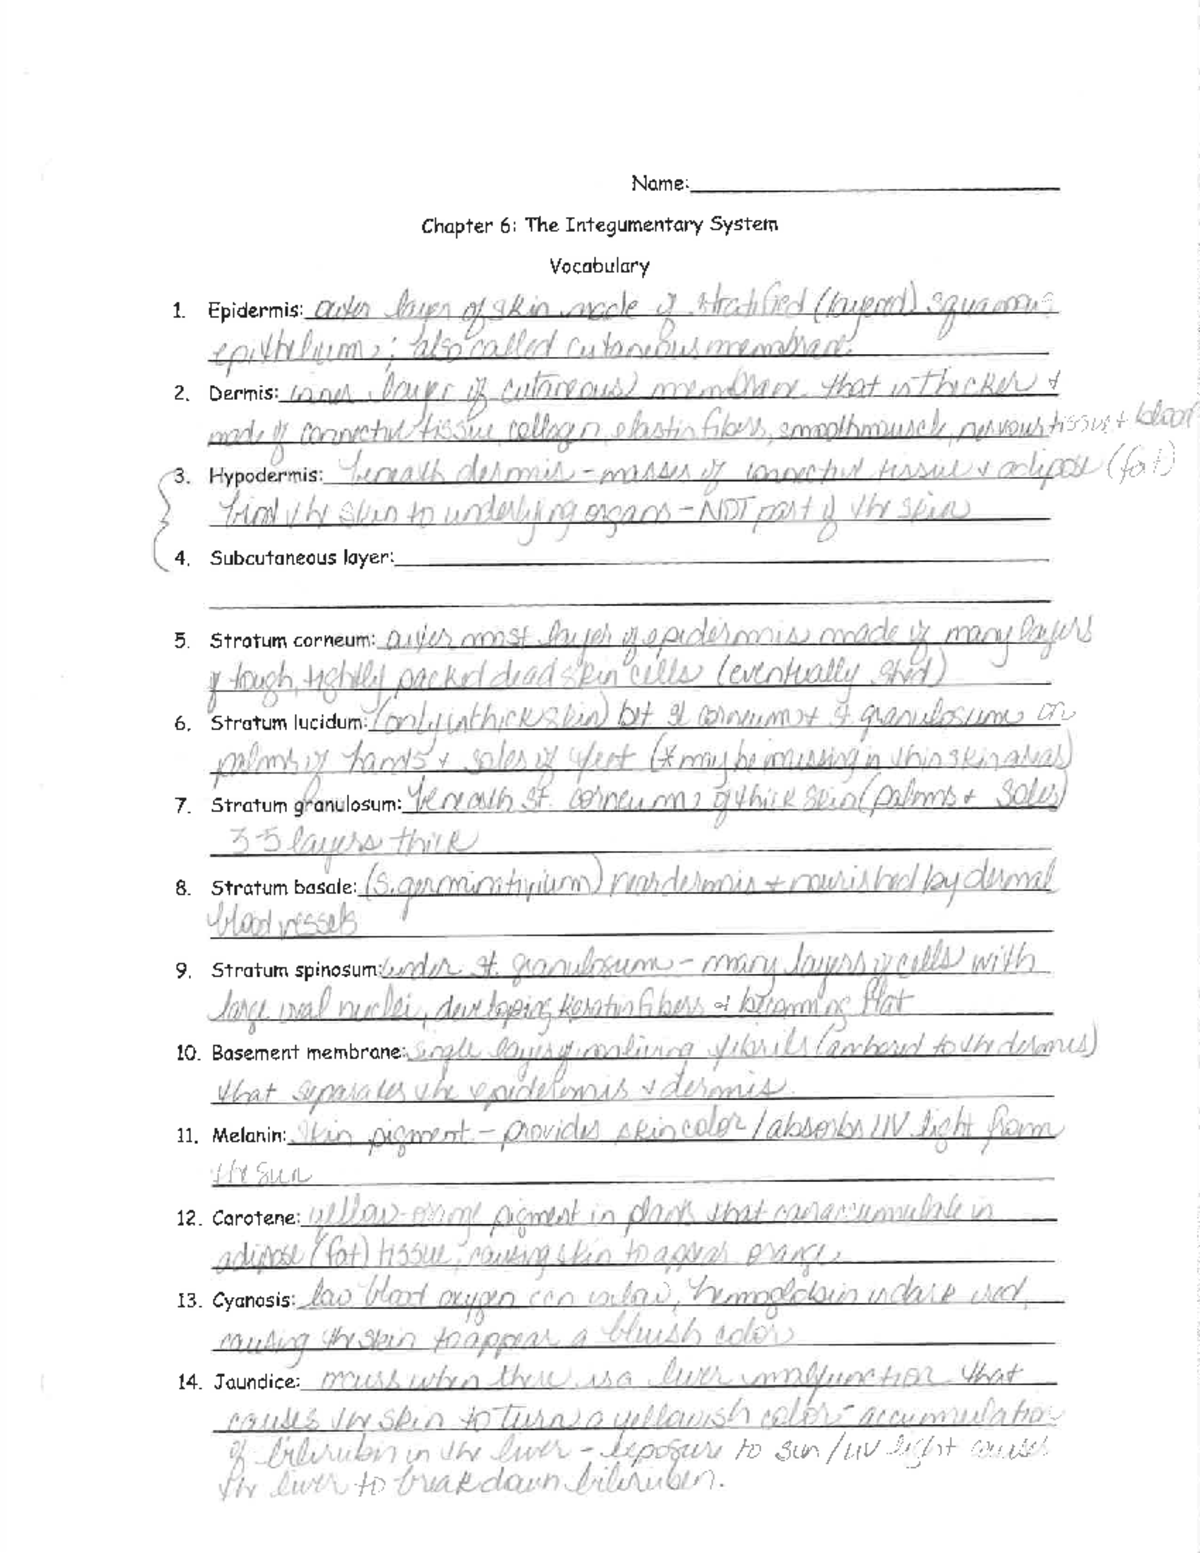 Name:
Chapter 6: The Integumentary System
Vocabulary
1. Epidermis: outer layer of skin made of stratified (layered) squamous
epithelium; also called cutaneous membrane.
2. Dermis: inner layer of cutaneous membrane that is thicker +
made of connective tissue, collagen, elastin fibers, smooth muscle, nervous tissue + blood
3. Hypodermis: beneath dermis - masses of connective tissue + adipose (fat)
bind the skin to underlying organs - NOT part of the skin
4. Subcutaneous layer:
5. Stratum corneum: outer most layer of epidermis made of many layers
of tough, tightly packed dead skin cells (eventually shed)
6. Stratum lucidum: (only in thick skin) bet st corneum + st granulosum on
palms of hands + soles of feet (* may be missing in thin skin areas)
7. Stratum granulosum: beneath st. corneum of thick skin (palms + soles)
3-5 layers thick
8. Stratum basale: (s. germinativum) near dermis + nourished by dermal
blood vessels
9. Stratum spinosum: under st. granulosum - many layers of cells with
large oval nuclei, developing keratin fibers + becoming flat
10. Basement membrane: single layer of nonliving fibrils (anchored to the dermis)
that separates the epidermis + dermis.
11. Melanin: skin pigment - provides skin color / absorbs UV light from
the sun
12. Carotene: yellow-orange pigment in plants that can accumulate in
adipose (fat) tissue, causing skin to appear orange.
13. Cyanosis: low blood oxygen can, hemoglobin is dark red,
causing the skin to appear a bluish color
14. Jaundice: when there is a liver malfunction that
causes the skin to turn a yellowish color - accumulation
of bilirubin in the liver - exposure to sun/UV light causes
the liver to break down biliruben.